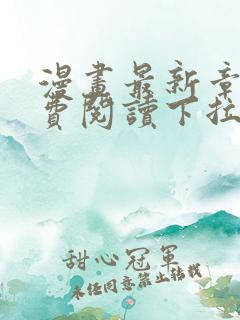 漫畫最新章
費閱讀下拉
甜心冠軍
未经同意禁止转载